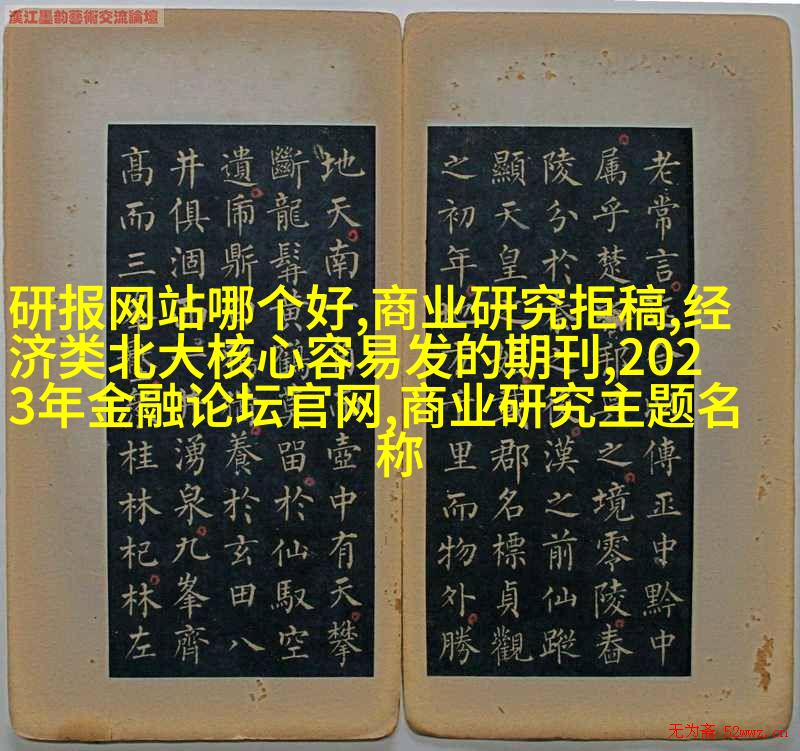 漢江墨韵藝術交流論壇
研报网站哪个好,商业研究拒稿,经
济类北大核心容易发的期刊,202
3年金融论坛官网,商业研究主题名
称
老常言 傳正中黔中
属乎楚 之境零陵舂
陵分於 漢之前仙蹤
顯天皇 郡名標貞觀
之初年 里而物外勝
地天南 壺中有天攀
斷龍髯黄鶴莫留於仙馭空
遺 鼎 養於玄田八
井俱涸 湧泉九峯齊
髙而三 桂林杞林左
无为斋 52wwz.cn